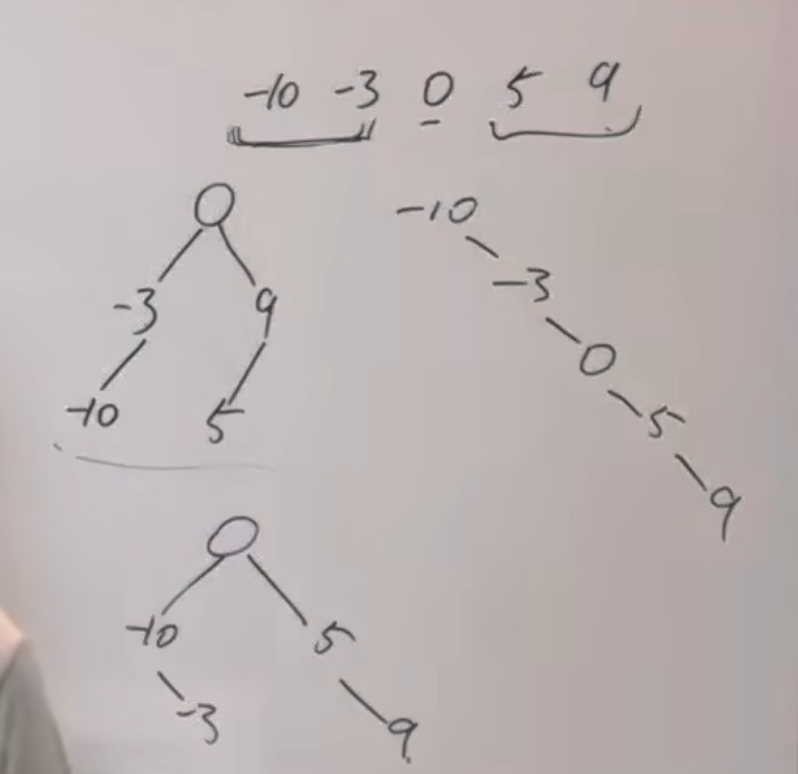 -10 -3 0 5 9
0
-3 9
-10 5
-10
-3
0
5
9
0
-10 5
-3 9